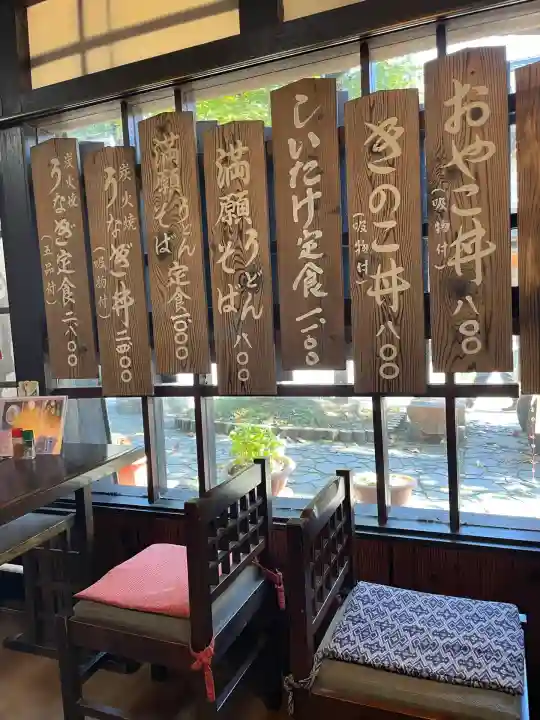 おやこ丼 八〇〇
(吸物付)
きのこ丼 八〇〇
(吸物付)
しいたけ定食 一一〇〇
満願うどんそば 八〇〇
満願うどんそば定食 一〇〇〇
炭火焼
うなぎ丼 二四〇〇
(吸物付)
炭火焼
うなぎ定食 二八〇〇
(五品付)